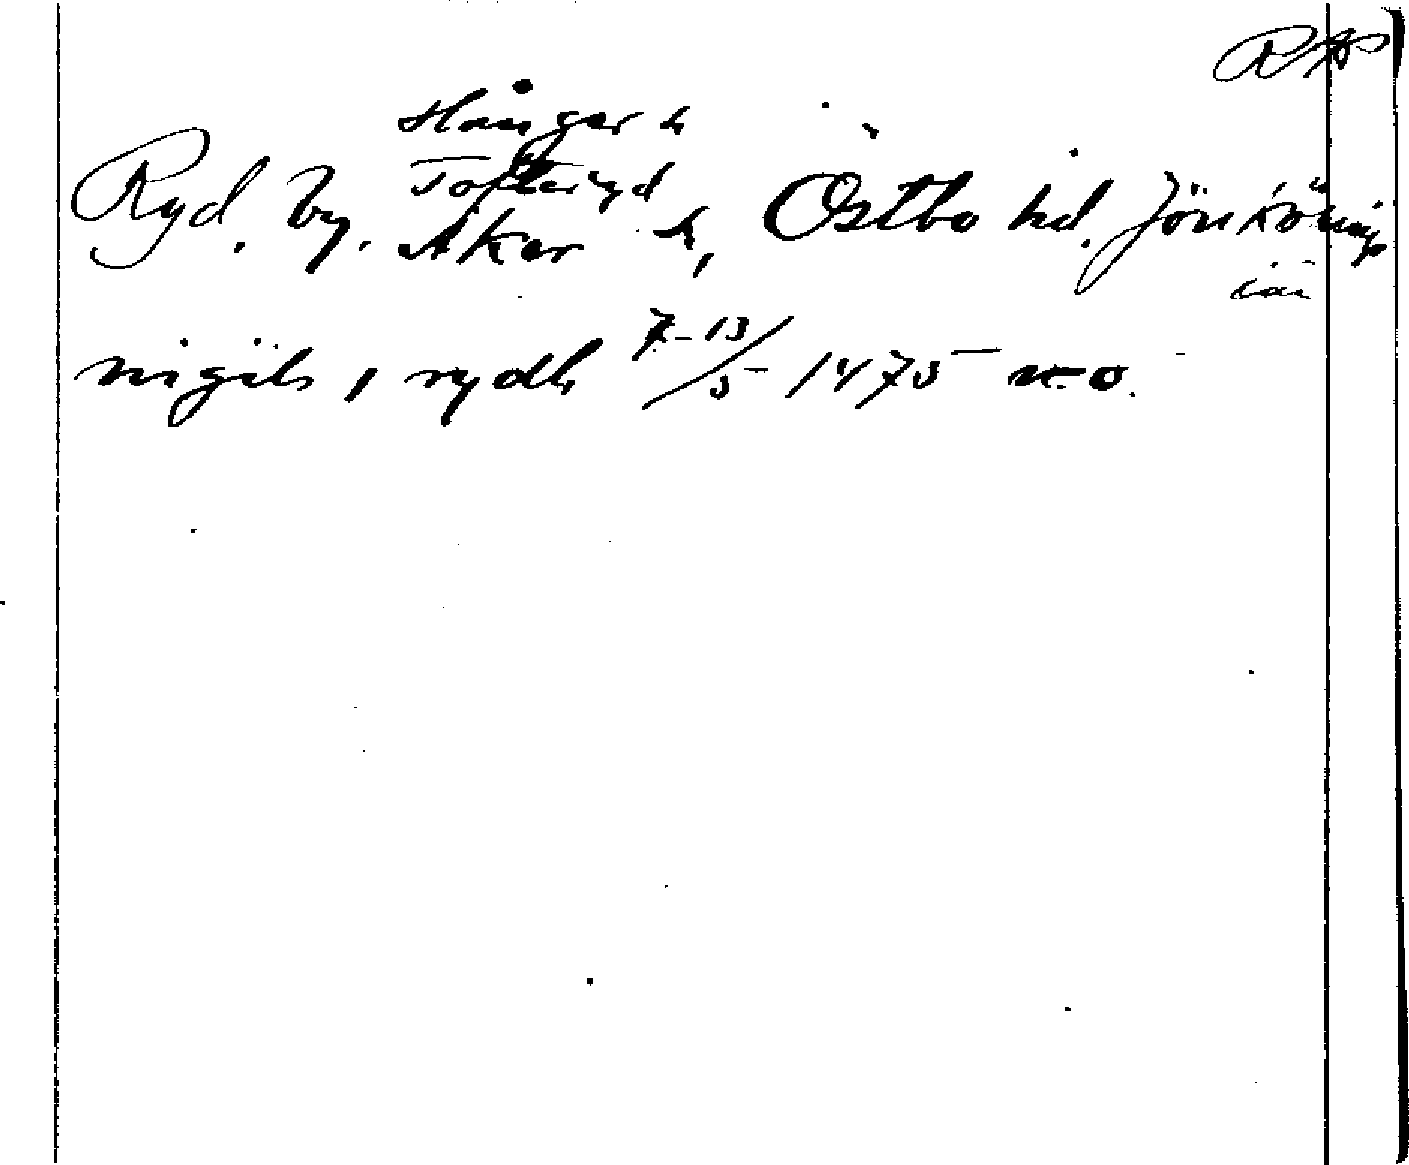 RAP
Hånger s
Tofteryd
Ryd, by. Åker s, Östbo hd. Jönköpings
län
nigils i rydh 7-13/5 1475 n:o.